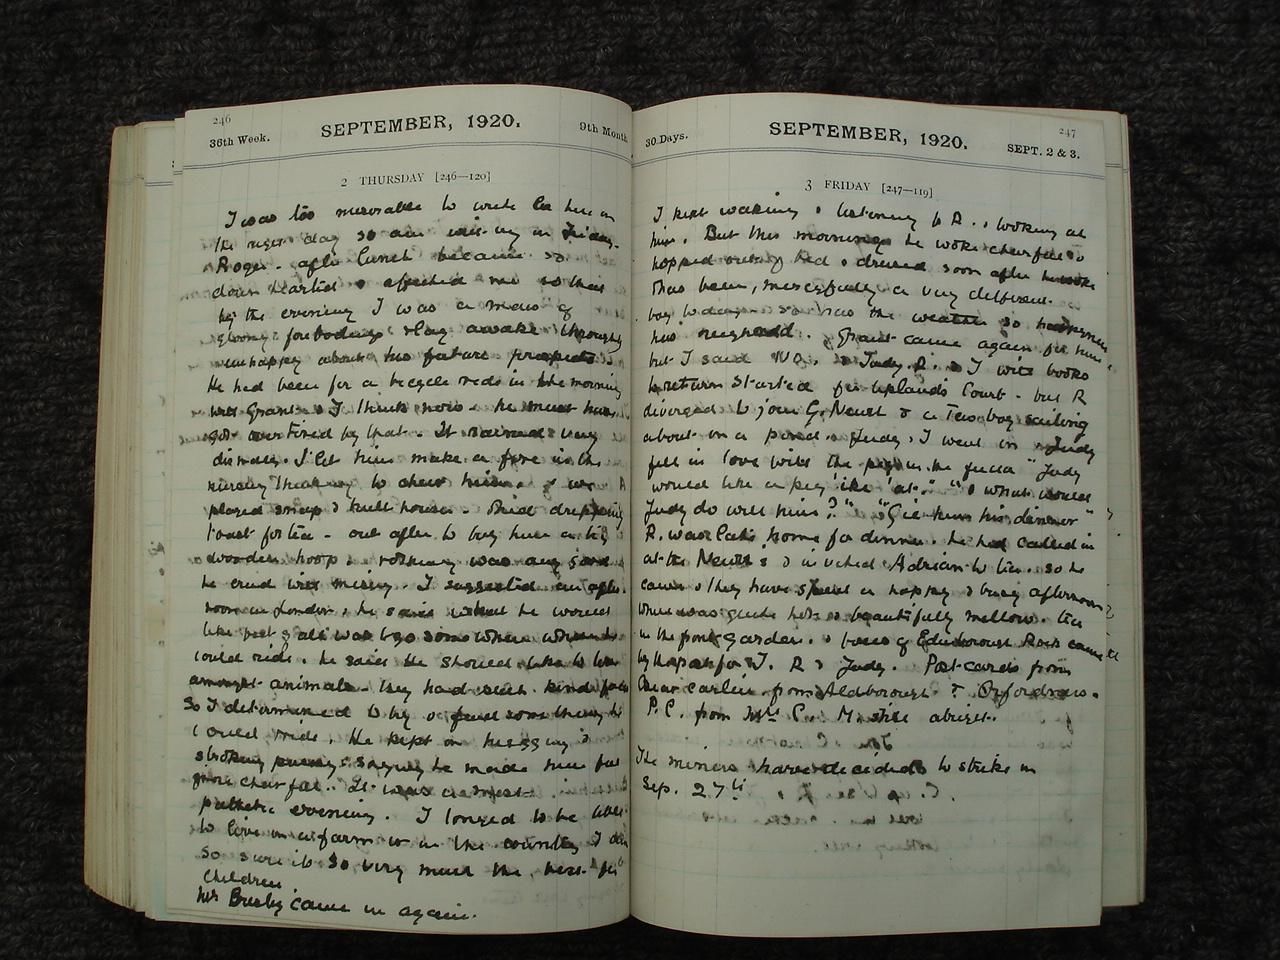 246
36th Week. SEPTEMBER, 1920. 9th Month
2 THURSDAY [246—120]
I was too miserable to write here on
the right day so am writing in Friday.
Roger after lunch became so
down hearted & affected me so that
by the evening I was a mass of
gloomy forbodings & lay awake
unhappy about his future prospects.
He had been for a bicycle ride in the morning
with Grant & I think now he must have
got overtired by that. It rained very
dismally. I let him make a fire in the
nursery thinking to cheer him & we
played snap & built houses. Had dripping
toast for tea. out after to buy him a big
wooden hoop & nothing was any good
he cried with misery. I suggested an after-
noon in London & he said what he would
like best of all was to go somewhere where he
could ride. he said he should like to live
amongst animals. they had such kind faces
So I determined to try & find something he
could ride. He kept on kissing &
stroking pussy & saying he made him feel
more cheerful. It was a most
pathetic evening. I longed to be able
to live on a farm or in the country I am
so sure it is so very much the best for
children.
Mr Busby came in again.
247
30 Days. SEPTEMBER, 1920. SEPT. 2 & 3.
3 FRIDAY [247—119]
I kept waking & listening to R. & looking at
him. But this morning he woke cheerful &
hopped out of bed & dressed soon after
Has been, mercifully a very different
boy today & so has the weather so
has neighed. Grant came again for him
but I said NO. & Judy. R. & I with books
to return started for Uplands Court. but R
diverged to join G. Newt & a boy sailing
about on a pond. Judy & I went on & Judy
fell in love with the pig in the "Judy
would like a pig like 'at." "& what would
Judy do with him?" "Give him his dinner"
R. was late home for dinner. he had called in
at the Newts & invited Adrian to tea. so he
came & they have spent a happy & busy afternoon
which was quite hot & beautifully mellow. Tea
in the front garden. & boxes of Edinburgh Rock came
by the post for J. R & Judy. Post cards from
earlier from Aldborough & Orfordness.
P.C. from Mrs C. M. still abright.
The miners have decided to strike on
Sep. 27th